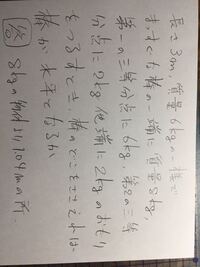 長さ3m、質量6kgの一様で
まっすぐな棒の一端に質量8kg、
第一の三等分点に6kg、第2の三等
分点に2kg、他端に2kgのおもり
をつるすとき、棒のどこをささえれば
棒が水平となるか。
答 8kgの物体より1.04mの所